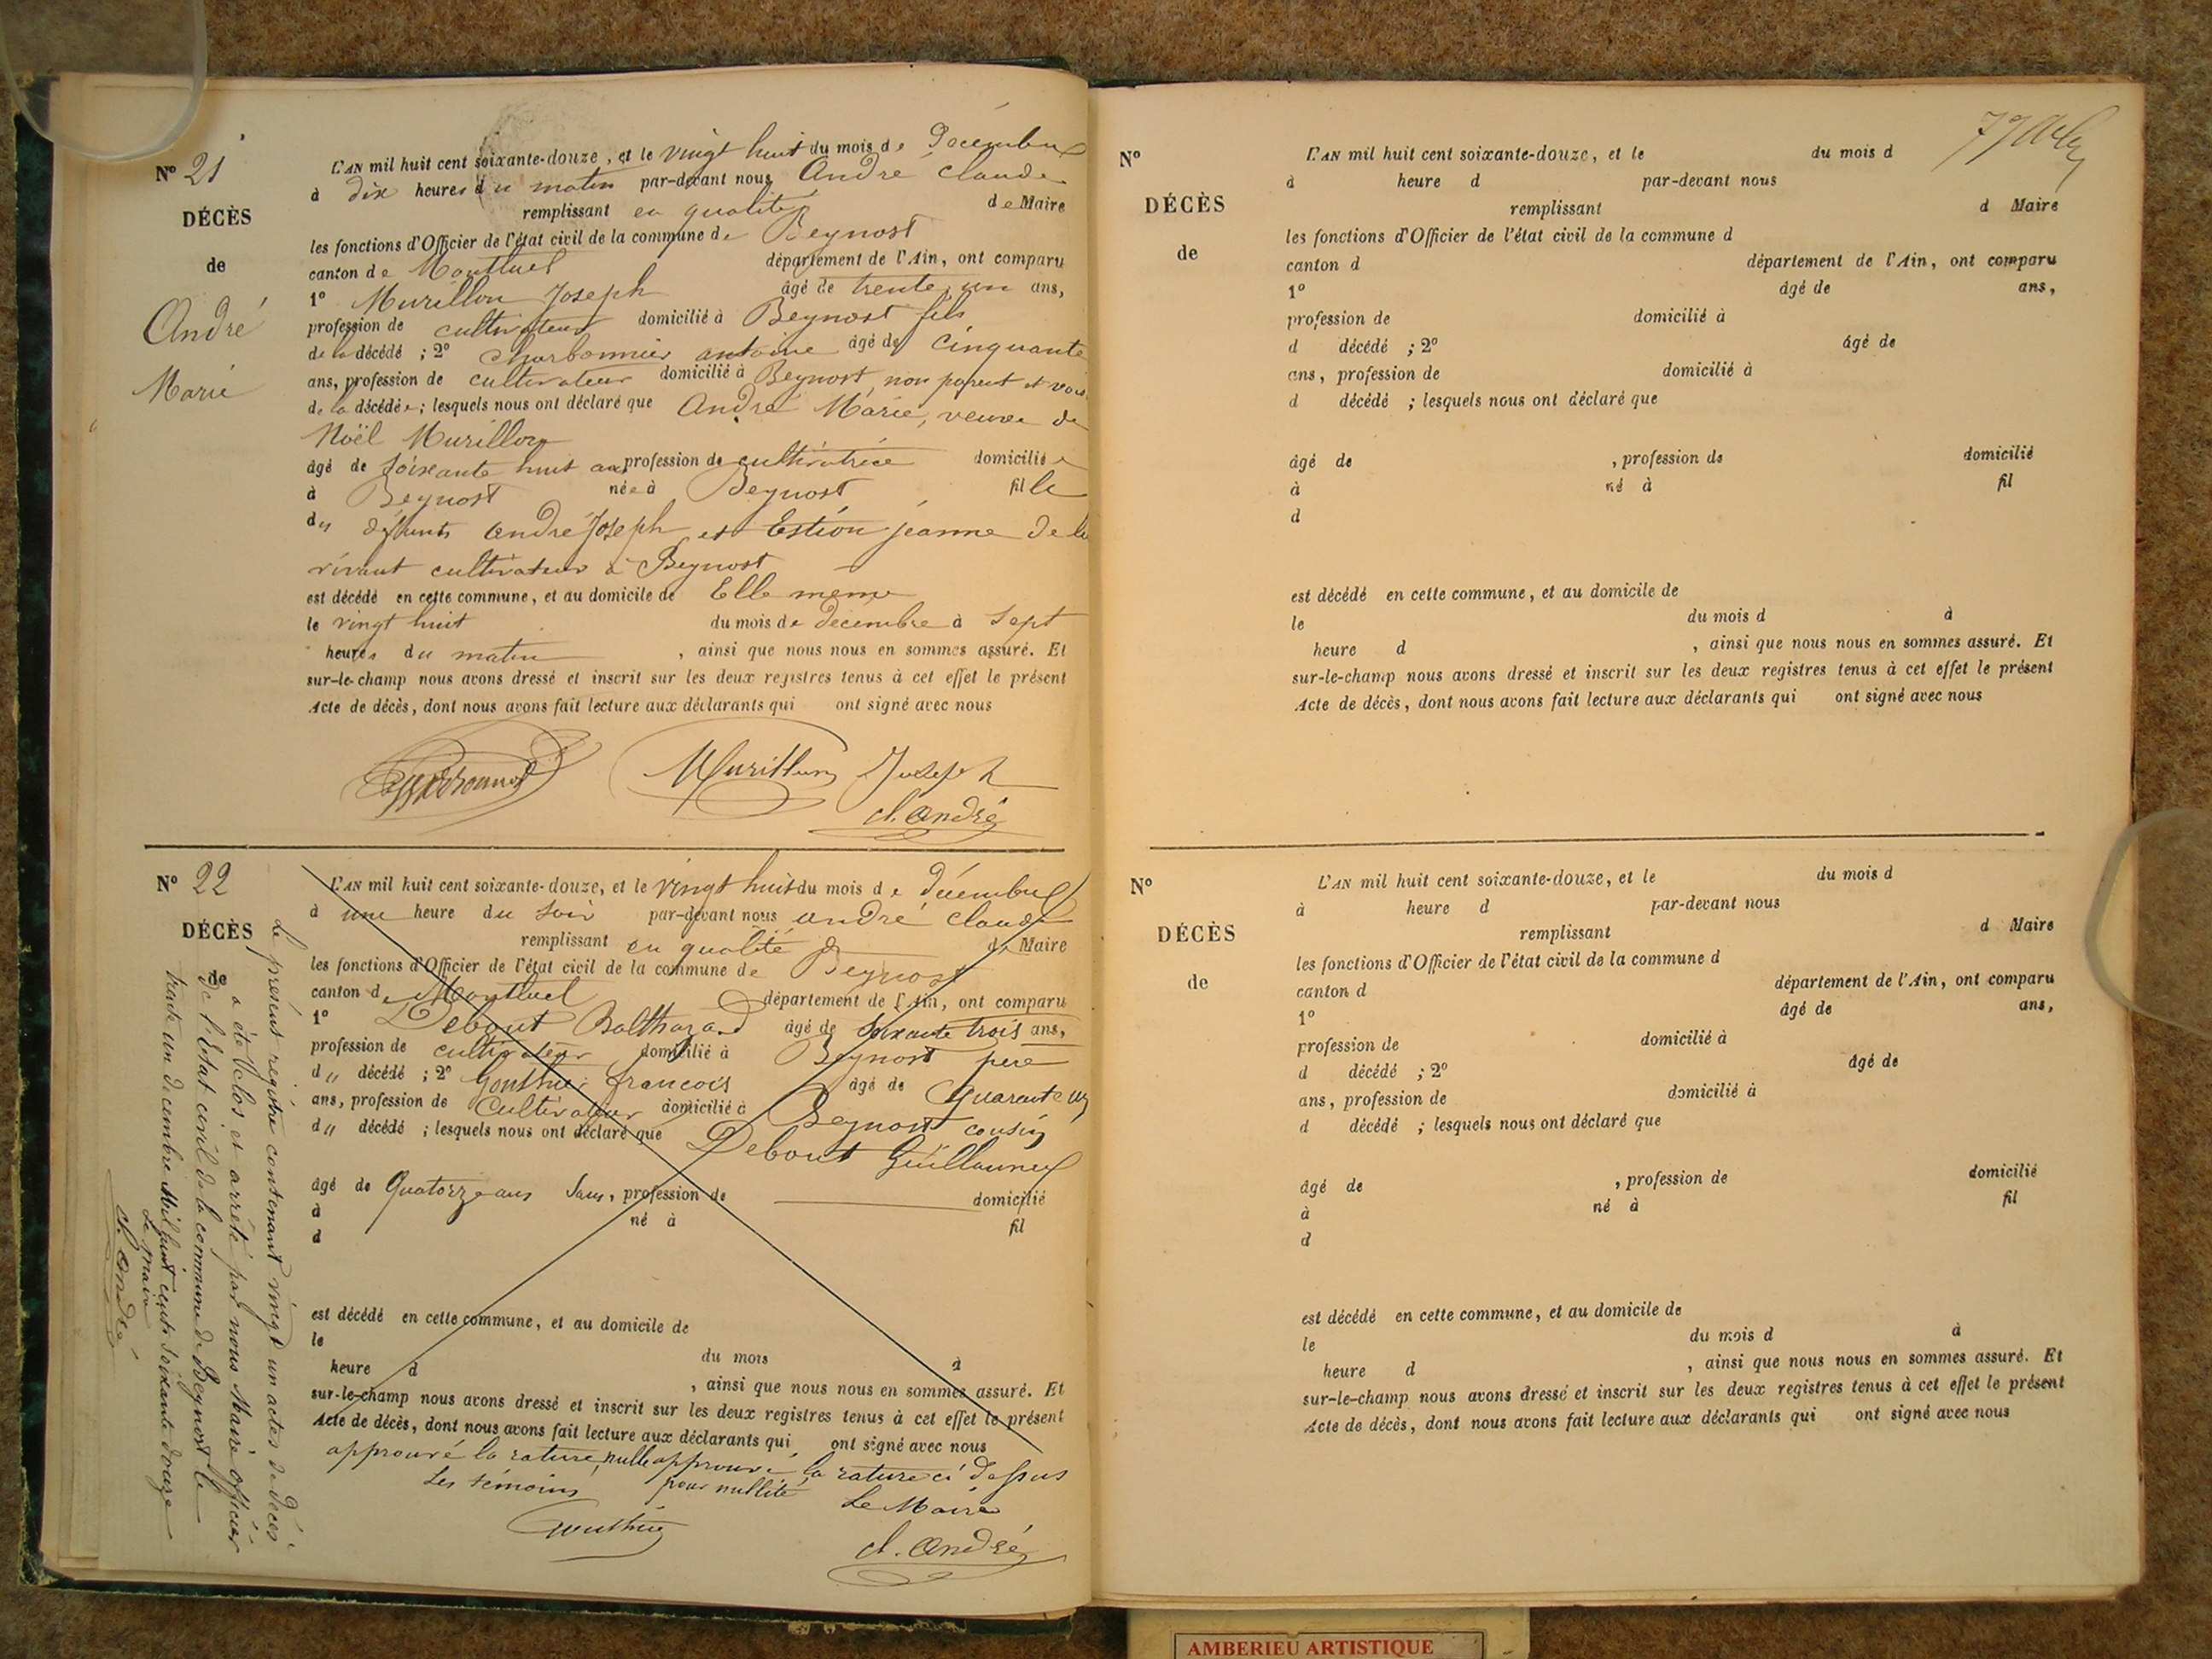 Nº 21
DÉCÈS
de
André
Marie
L'AN mil huit cent soixante-douze, et le vingt huit du mois de Décembre
à dix heures du matin par-devant nous André Claude
remplissant en qualité de Maire
les fonctions d'Officier de l'état civil de la commune de Beynost
canton de Montluel département de l'Ain, ont comparu
1º Murillon Joseph âgé de trente un ans,
profession de cultivateur domicilié à Beynost fils
de la décédé ; 2º Charbonnier antoine âgé de cinquante
ans, profession de cultivateur domicilié à Beynost, non parent et
de la décédée ; lesquels nous ont déclaré que André Marie, veuve de
Noël Murillon
âgé de soixante huit ans profession de cultivatrice domicilié e
à Beynost née à Beynost fille
des défunts andré Joseph et Estion jeanne de leur
vivant cultivateurs à Beynost
est décédé en cette commune, et au domicile de Elle meme
le vingt huit du mois de décembre à Sept
heures du matin , ainsi que nous nous en sommes assuré. Et
sur-le-champ nous avons dressé et inscrit sur les deux registres tenus à cet effet le présent
Acte de décès, dont nous avons fait lecture aux déclarants qui ont signé avec nous
Murillon Joseph
cl. André
Nº 22
DÉCÈS
de
L'AN mil huit cent soixante-douze, et le vingt huit du mois de décembre
à une heure du soir par-devant nous andré claude
remplissant en qualité de de Maire
les fonctions d'Officier de l'état civil de la commune de Beynost
canton de Montluel département de l'Ain, ont comparu
1º Debout Balthazard âgé de soixante trois ans,
profession de cultivateur domicilié à Beynost pere
d„ décédé ; 2º Gonthier francois âgé de Quarante un
ans, profession de Cultivateur domicilié à Beynost cousin
d„ décédé ; lesquels nous ont déclaré que Debout Guillaume
âgé de Quatorze ans Sans, profession de domicilié
à né à fil
d
est décédé en cette commune, et au domicile de
le du mois à
heure d , ainsi que nous nous en sommes assuré. Et
sur-le-champ nous avons dressé et inscrit sur les deux registres tenus à cet effet le présent
Acte de décès, dont nous avons fait lecture aux déclarants qui ont signé avec nous
approuvé la rature nulle approuvé la rature ci dessus
Les témoins pour nullité Le Maire
Gonthier
cl. André
Le présent registre contenant vingt un actes de décès
a été clos et arrêté par nous Maire officier
de l'Etat civil de la commune de Beynost le
trente un decembre Mil huit cents soixante douze
Le Maire
cl. andré
Nº
DÉCÈS
de
L'AN mil huit cent soixante-douze, et le du mois d
à heure d par-devant nous
remplissant d Maire
les fonctions d'Officier de l'état civil de la commune d
canton d département de l'Ain, ont comparu
1º âgé de ans,
profession de domicilié à
d décédé ; 2º âgé de
ans, profession de domicilié à
d décédé ; lesquels nous ont déclaré que
âgé de , profession de domicilié
à né à fil
d
est décédé en cette commune, et au domicile de
le du mois d à
heure d , ainsi que nous nous en sommes assuré. Et
sur-le-champ nous avons dressé et inscrit sur les deux registres tenus à cet effet le présent
Acte de décès, dont nous avons fait lecture aux déclarants qui ont signé avec nous
Nº
DÉCÈS
de
L'AN mil huit cent soixante-douze, et le du mois d
à heure d par-devant nous
remplissant d Maire
les fonctions d'Officier de l'état civil de la commune d
canton d département de l'Ain, ont comparu
1º âgé de ans,
profession de domicilié à
d décédé ; 2º âgé de
ans, profession de domicilié à
d décédé ; lesquels nous ont déclaré que
âgé de , profession de domicilié
à né à fil
d
est décédé en cette commune, et au domicile de
le du mois d à
heure d , ainsi que nous nous en sommes assuré. Et
sur-le-champ nous avons dressé et inscrit sur les deux registres tenus à cet effet le présent
Acte de décès, dont nous avons fait lecture aux déclarants qui ont signé avec nous
AMBERIEU ARTISTIQUE